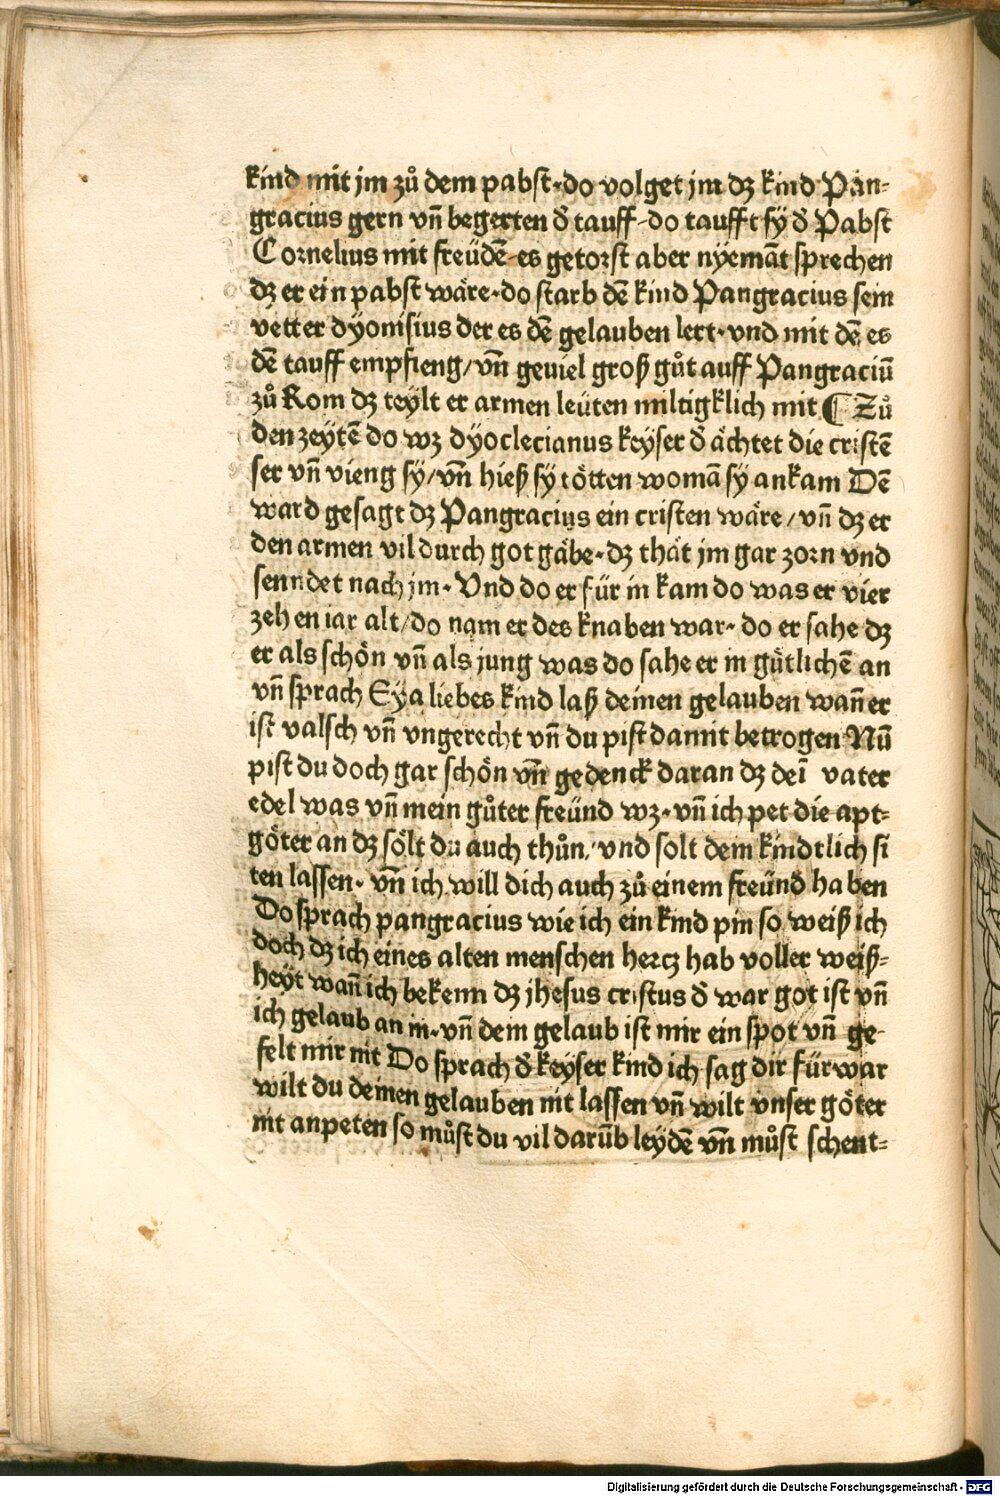 kind mit jm zů dem pabst·do volget jm dz kind Pan-
gracius gern vñ begerten đ tauff·do taufft sÿ đ Pabst
Cornelius mit freüdē·es getorst aber nÿemāt sprechen
dz er ein pabst wäre·do starb dē kind Pangracius sein
vetter dÿonisius der es dē gelauben lert·vnd mit dē es
dē tauff empfieng/vñ geviel groß gůt auff Pangraciū
zů Rom dz teÿlt er armen leüten miltigklich mit ⸿ Zů
den zeÿtē do wz dÿoclecianus keÿser đ ächtet die cristē
ser vñ vieng sÿ/vñ hieß sÿ tötten womā sÿ ankam Dē
ward gesagt dz Pangracius ein cristen wäre/vñ dz er
den armen vil durch got gäbe·dz thät jm gar zorn vnd
senndet nach jm·Vnd do er für in kam do was er vier
zehen iar alt/do nam er des knaben war·do er sahe dz
er als schön vñ als jung was do sahe er in gütlichē an
vñ sprach Eÿa liebes kind laß deinen gelauben wañ er
ist valsch vñ vngerecht vñ du pist damit betrogen Nū
pist du doch gar schön vñ gedenck daran dz deī vater
edel was vñ mein gůter freünd wz·vñ ich pet die apt-
göter an dz sölt du auch thůn/vnd solt dein kindtlich si
ten lassen·vñ ich will dich auch zů einem freünd haben
Do sprach pangracius wie ich ein kind pin so weiß ich
doch dz ich eines alten menschen hercz hab voller weiß-
heÿt wañ ich bekenn dz jhesus cristus đ war got ist vñ
ich gelaub an in·vñ dein gelaub ist mir ein spot vñ ge-
felt mir nit Do sprach đ keÿser kind ich sag dir fürwar
wilt du deinen gelauben nit lassen vñ wilt vnser göter
nit anpeten so můst du vil darūb leÿdē vñ můst schent-
Digitalisierung gefördert durch die Deutsche Forschungsgemeinschaft - DFG